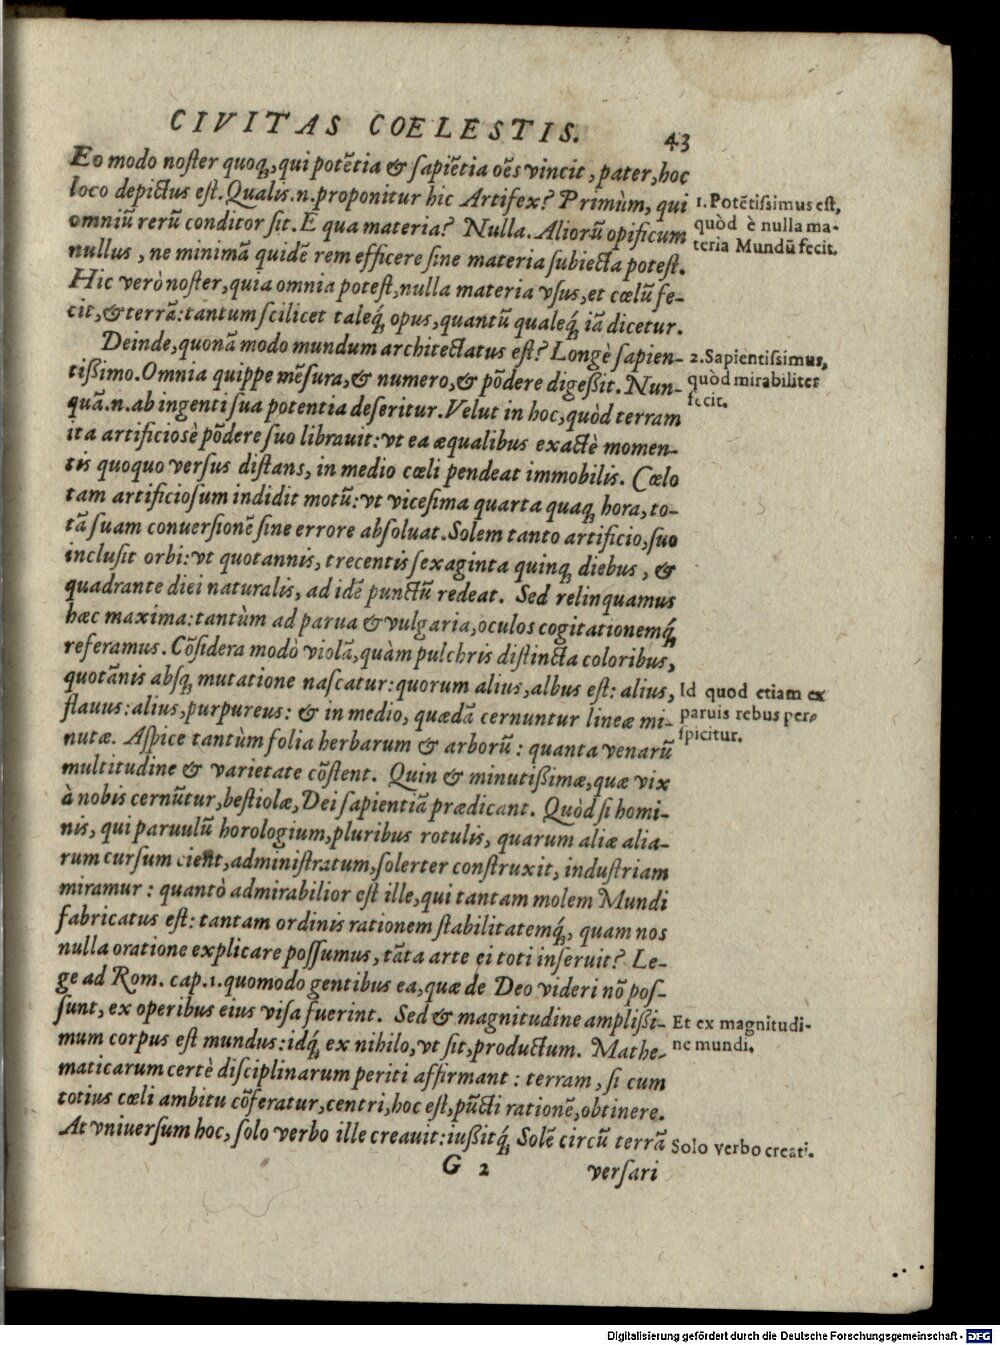 CIVITAS COELESTIS. 43
Eo modo noſter quoq́;, qui potẽtia & ſapiẽtia oẽs vincit, pater, hoc
loco depictus eſt. Qualis .n. proponitur hic Artifex? Primùm, qui
omniũ rerũ conditor ſit. E qua materia? Nulla. Aliorũ opificum
nullus, ne minimã quidẽ rem efficere ſine materia ſubiecta poteſt.
Hic verò noſter, quia omnia poteſt, nulla materia vſus, et cœlũ fe-
cit, & terrã: tantum ſcilicet taleq́;, opus, quantũ qualeq́;, iã dicetur.
1. Potẽtiſsimus eſt,
quòd è nulla ma-
teria Mundũ fecit.
Deinde, quonã modo mundum architectatus eſt? Longè ſapien-
tißimo. Omnia quippe mẽſura, & numero, & põdere digeßit. Nun-
quã .n. ab ingenti ſua potentia deſeritur. Velut in hoc, quòd terram
ita artificiosè põdere ſuo librauit: vt ea æqualibus exactè momen-
tis quoquo verſus diſtans, in medio cœli pendeat immobilis. Cœlo
tam artificioſum indidit motũ: vt viceſima quarta quaq́; hora, to-
tã ſuam conuerſionẽ ſine errore abſoluat. Solem tanto artificio, ſuo
incluſit orbi: vt quotannis, trecentis ſexaginta quinq; diebus, &
quadrante diei naturalis, ad idẽ punctũ redeat. Sed relinquamus
hæc maxima: tantùm ad parua & vulgaria, oculos cogitationemq́;
referamus. Cõſidera modò violã, quàm pulchris diſtincta coloribus,
quotãnis abſq; mutatione naſcatur: quorum alius, albus eſt: alius,
flauus: alius, purpureus: & in medio, quædã cernuntur lineæ mi-
nutæ. Aſpice tantùm folia herbarum & arborũ: quanta venarũ
multitudine & varietate cõſtent. Quin & minutißimæ, quæ vix
à nobis cernũtur, beſtiolæ, Dei ſapientiã prædicant. Quòd ſi homi-
nis, qui paruulũ horologium, pluribus rotulis, quarum aliæ alia-
rum curſum cient, adminiſtratum, ſolerter conſtruxit, induſtriam
miramur: quantò admirabilior eſt ille, qui tantam molem Mundi
fabricatus eſt: tantam ordinis rationem ſtabilitatemq́;, quam nos
nulla oratione explicare poſſumus, tãta arte ei toti inſeruit? Le-
ge ad Rom. cap. 1. quomodo gentibus ea, quæ de Deo videri nõ poſ-
ſunt, ex operibus eius viſa fuerint. Sed & magnitudine amplißi-
mum corpus eſt mundus: idq́; ex nihilo, vt ſit, productum. Mathe-
maticarum certè diſciplinarum periti affirmant: terram, ſi cum
totius cœli ambitu cõferatur, centri, hoc eſt, pũcti rationẽ, obtinere.
At vniuerſum hoc, ſolo verbo ille creauit: iußitq́; Solẽ circũ terrã
2. Sapientiſsimus,
quòd mirabiliter
fecit.
Id quod etiam ex
paruis rebus per-
ſpicitur.
Et ex magnitudi-
ne mundi.
Solo verbo creati.
G 2
verſari
Digitalisierung gefördert durch die Deutsche Forschungsgemeinschaft - DFG